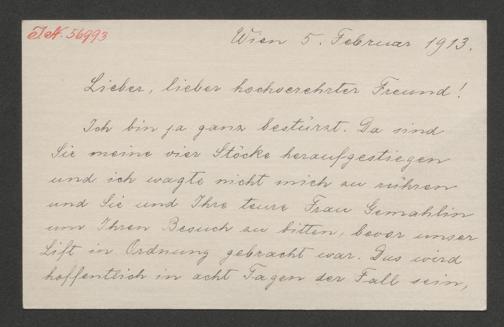 I.N. 56993
Wien 5. Februar 1913.
Lieber, lieber hochverehrter Freund!
Ich bin ja ganz bestürzt. Da sind
Sie meine vier Stöcke heraufgestiegen
und ich wagte nicht mich zu rühren
und Sie und Ihre teure Frau Gemahlin
um Ihren Besuch zu bitten, bevor unser
Lift in Ordnung gebracht war. Das wird
hoffentlich in acht Tagen der Fall sein,